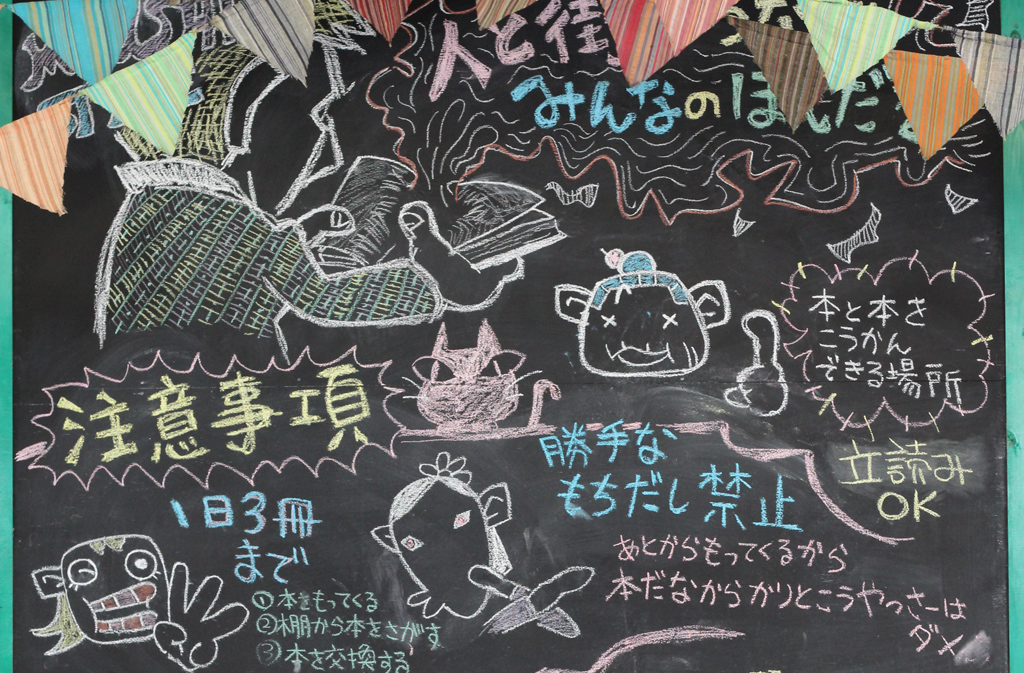 人と街
みんなのほんだ
本と本を
こうかん
できる場所
注意事項
立読み
OK
勝手な
もちだし禁止
1日3冊
まで
あとからもってくるから
本だなからかりとこうやっさーは
ダメ
①本をもってくる
②棚から本をさがす
③本を交換する